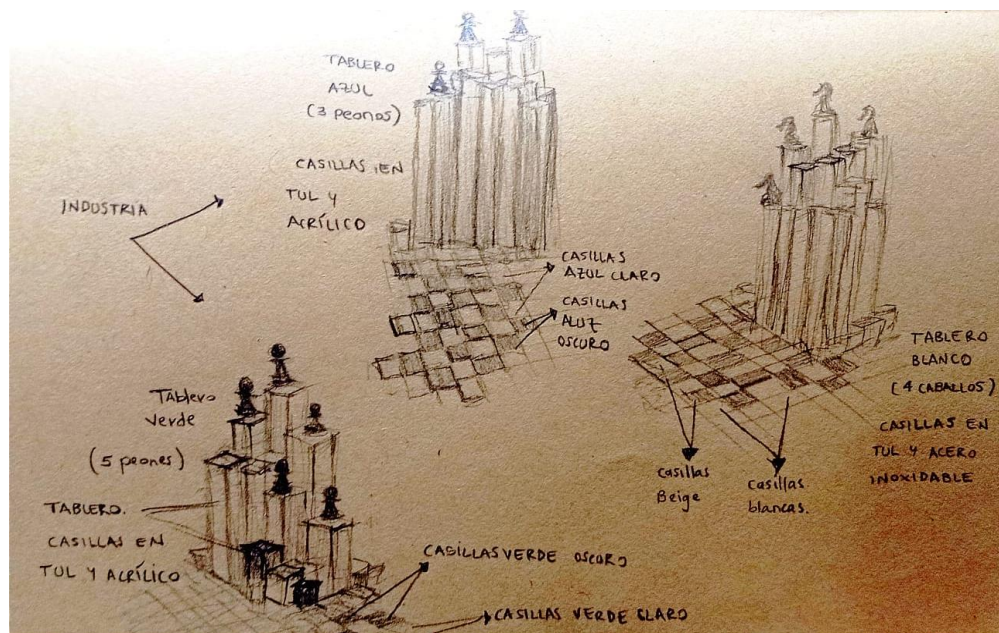 TABLERO
AZUL
(3 peones)
CASILLAS EN
TUL Y
ACRÍLICO
INDUSTRIA
CASILLAS
AZUL CLARO
CASILLAS
ALUZ
OSCURO
TABLERO
BLANCO
(4 CABALLOS)
CASILLAS EN
TUL Y ACERO
INOXIDABLE
casillas
Beige
casillas
blancas.
TAblero
verde
(5 peones)
TABLERO.
CASILLAS EN
TUL Y ACRÍLICO
CASILLAS VERDE OSCURO
CASILLAS VERDE CLARO